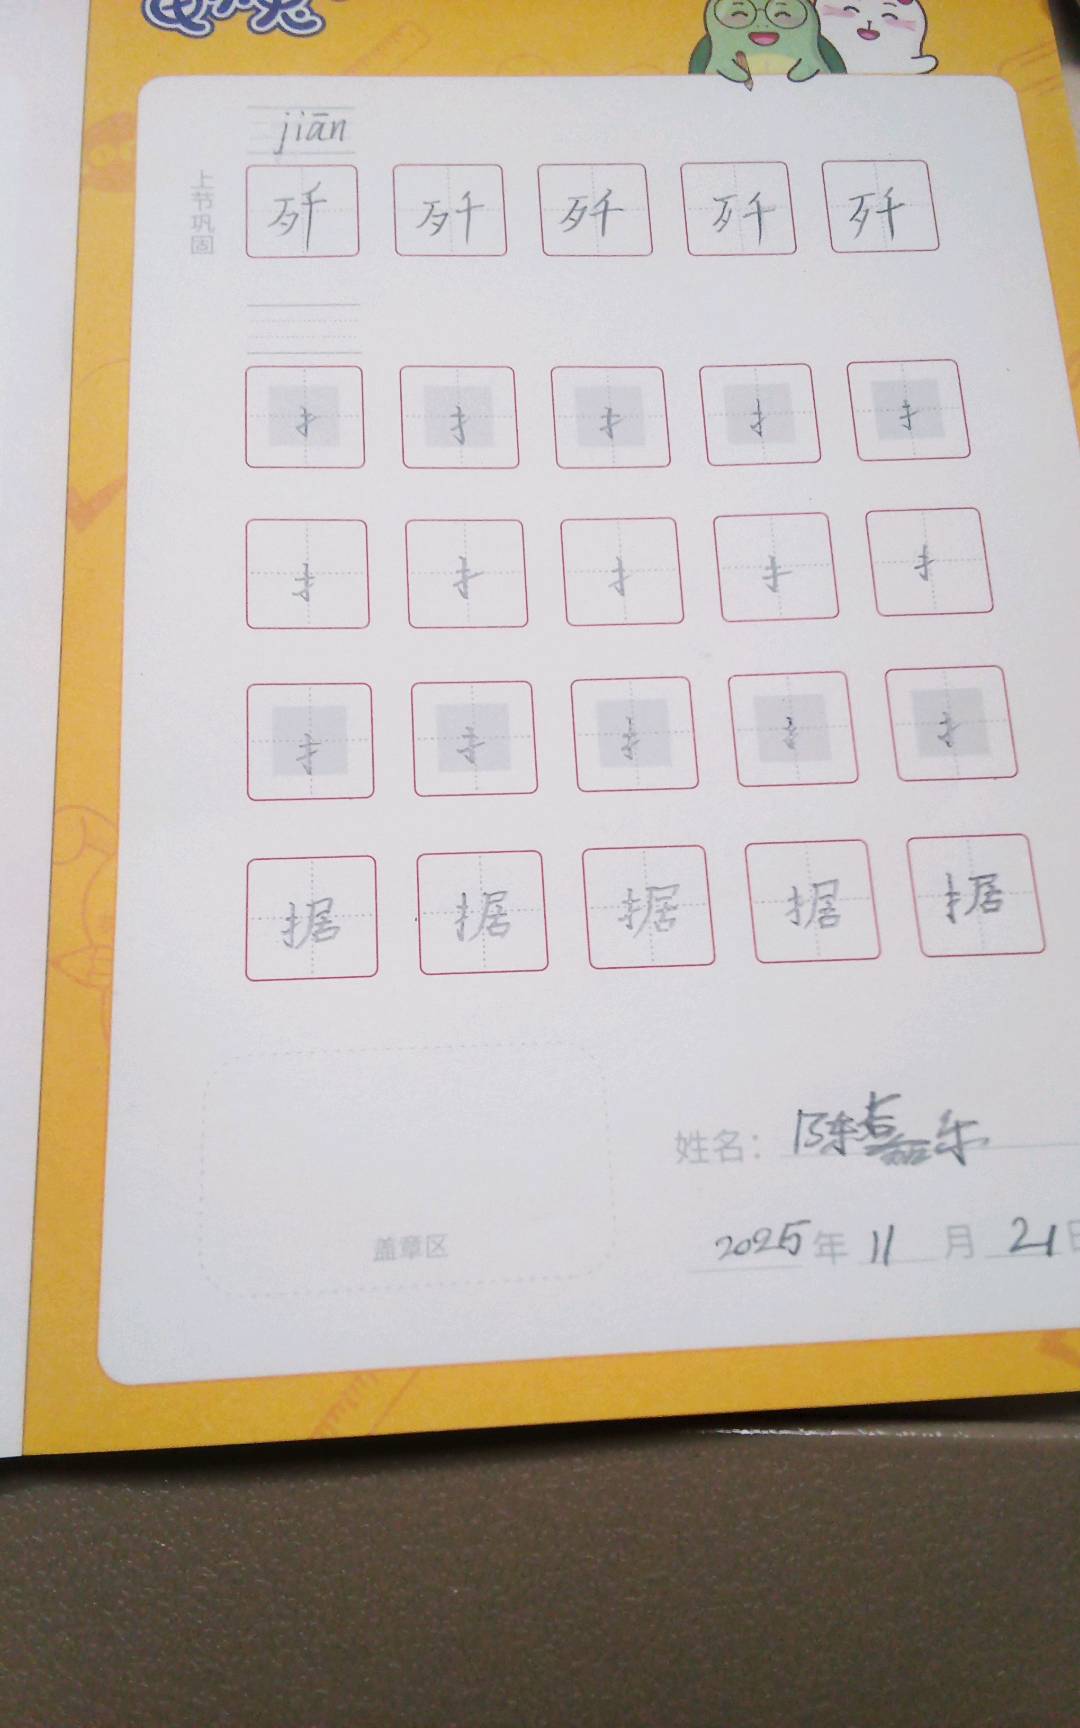 jiān
上节巩固
歼 歼 歼 歼 歼
扌 扌 扌 扌 扌
扌 扌 扌 扌 扌
扌 扌 扌 扌 扌
据 据 据 据 据
姓名： 陈嘉乐
盖章区
2025 年 11 月 21 日